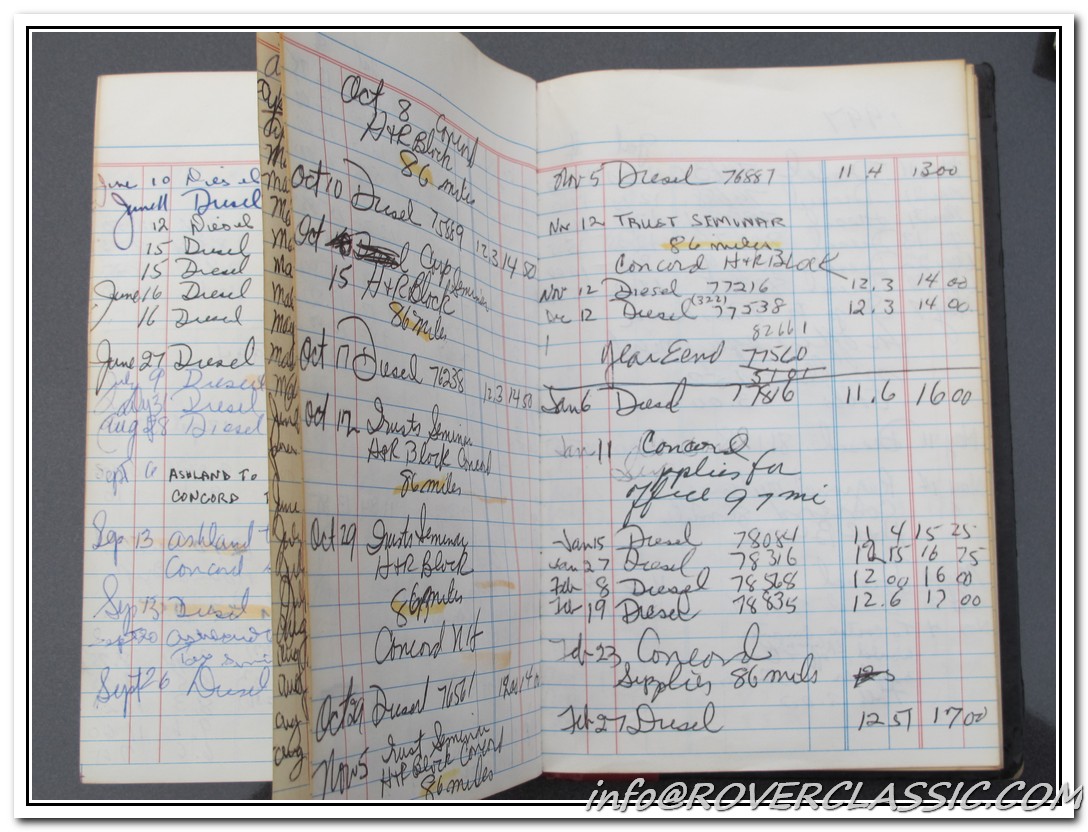 June 10 Diesel
June 11 Diesel
12 Diesel
15 Diesel
15 Diesel
June 16 Diesel
16 Diesel
June 27 Diesel
July 9 Diesel
July 31 Diesel
Aug 28 Diesel
Sept 6 ASHLAND TO
CONCORD
Sep 13 Ashland
Concord
Sep 13 Diesel
Sept 26 Diesel
Oct 8 Concord
H+R Block
86 miles
Oct 10 Diesel 75889 12.3 14 50
Oct Corp Seminar
15 H+R Block
86 miles
Oct 17 Diesel 76238 12.3 14 50
Oct 12 Trusts Seminar
H+R Block Concord
86 miles
Oct 29 Trusts Seminar
H+R Block
86 miles
Concord NH
Oct 29 Diesel 76561
Nov 5 Trust Seminar
H+R Block Concord
86 miles
Nov 5 Diesel 76887 11 4 13 00
Nov 12 TRUST SIMINAR
86 miles
Concord H+R Block
Nov 12 Diesel 77216 12.3 14 00
Dec 12 Diesel (322) 77538 12.3 14 00
82661
Year Eend 77560
5101
Jan 6 Diesel 77816 11.6 16 00
Jan 11 Concord
Supplies for
office 97 mi
Jan 15 Diesel 78084 11 4 15 25
Jan 27 Diesel 78316 12 15 16 75
Feb 8 Diesel 78568 12 00 16 00
Feb 19 Diesel 78835 12.6 17 00
Feb 23 Concord
Supplies 86 mils
Feb 27 Diesel 12 51 17 00
info@ROVERCLASSIC.COM